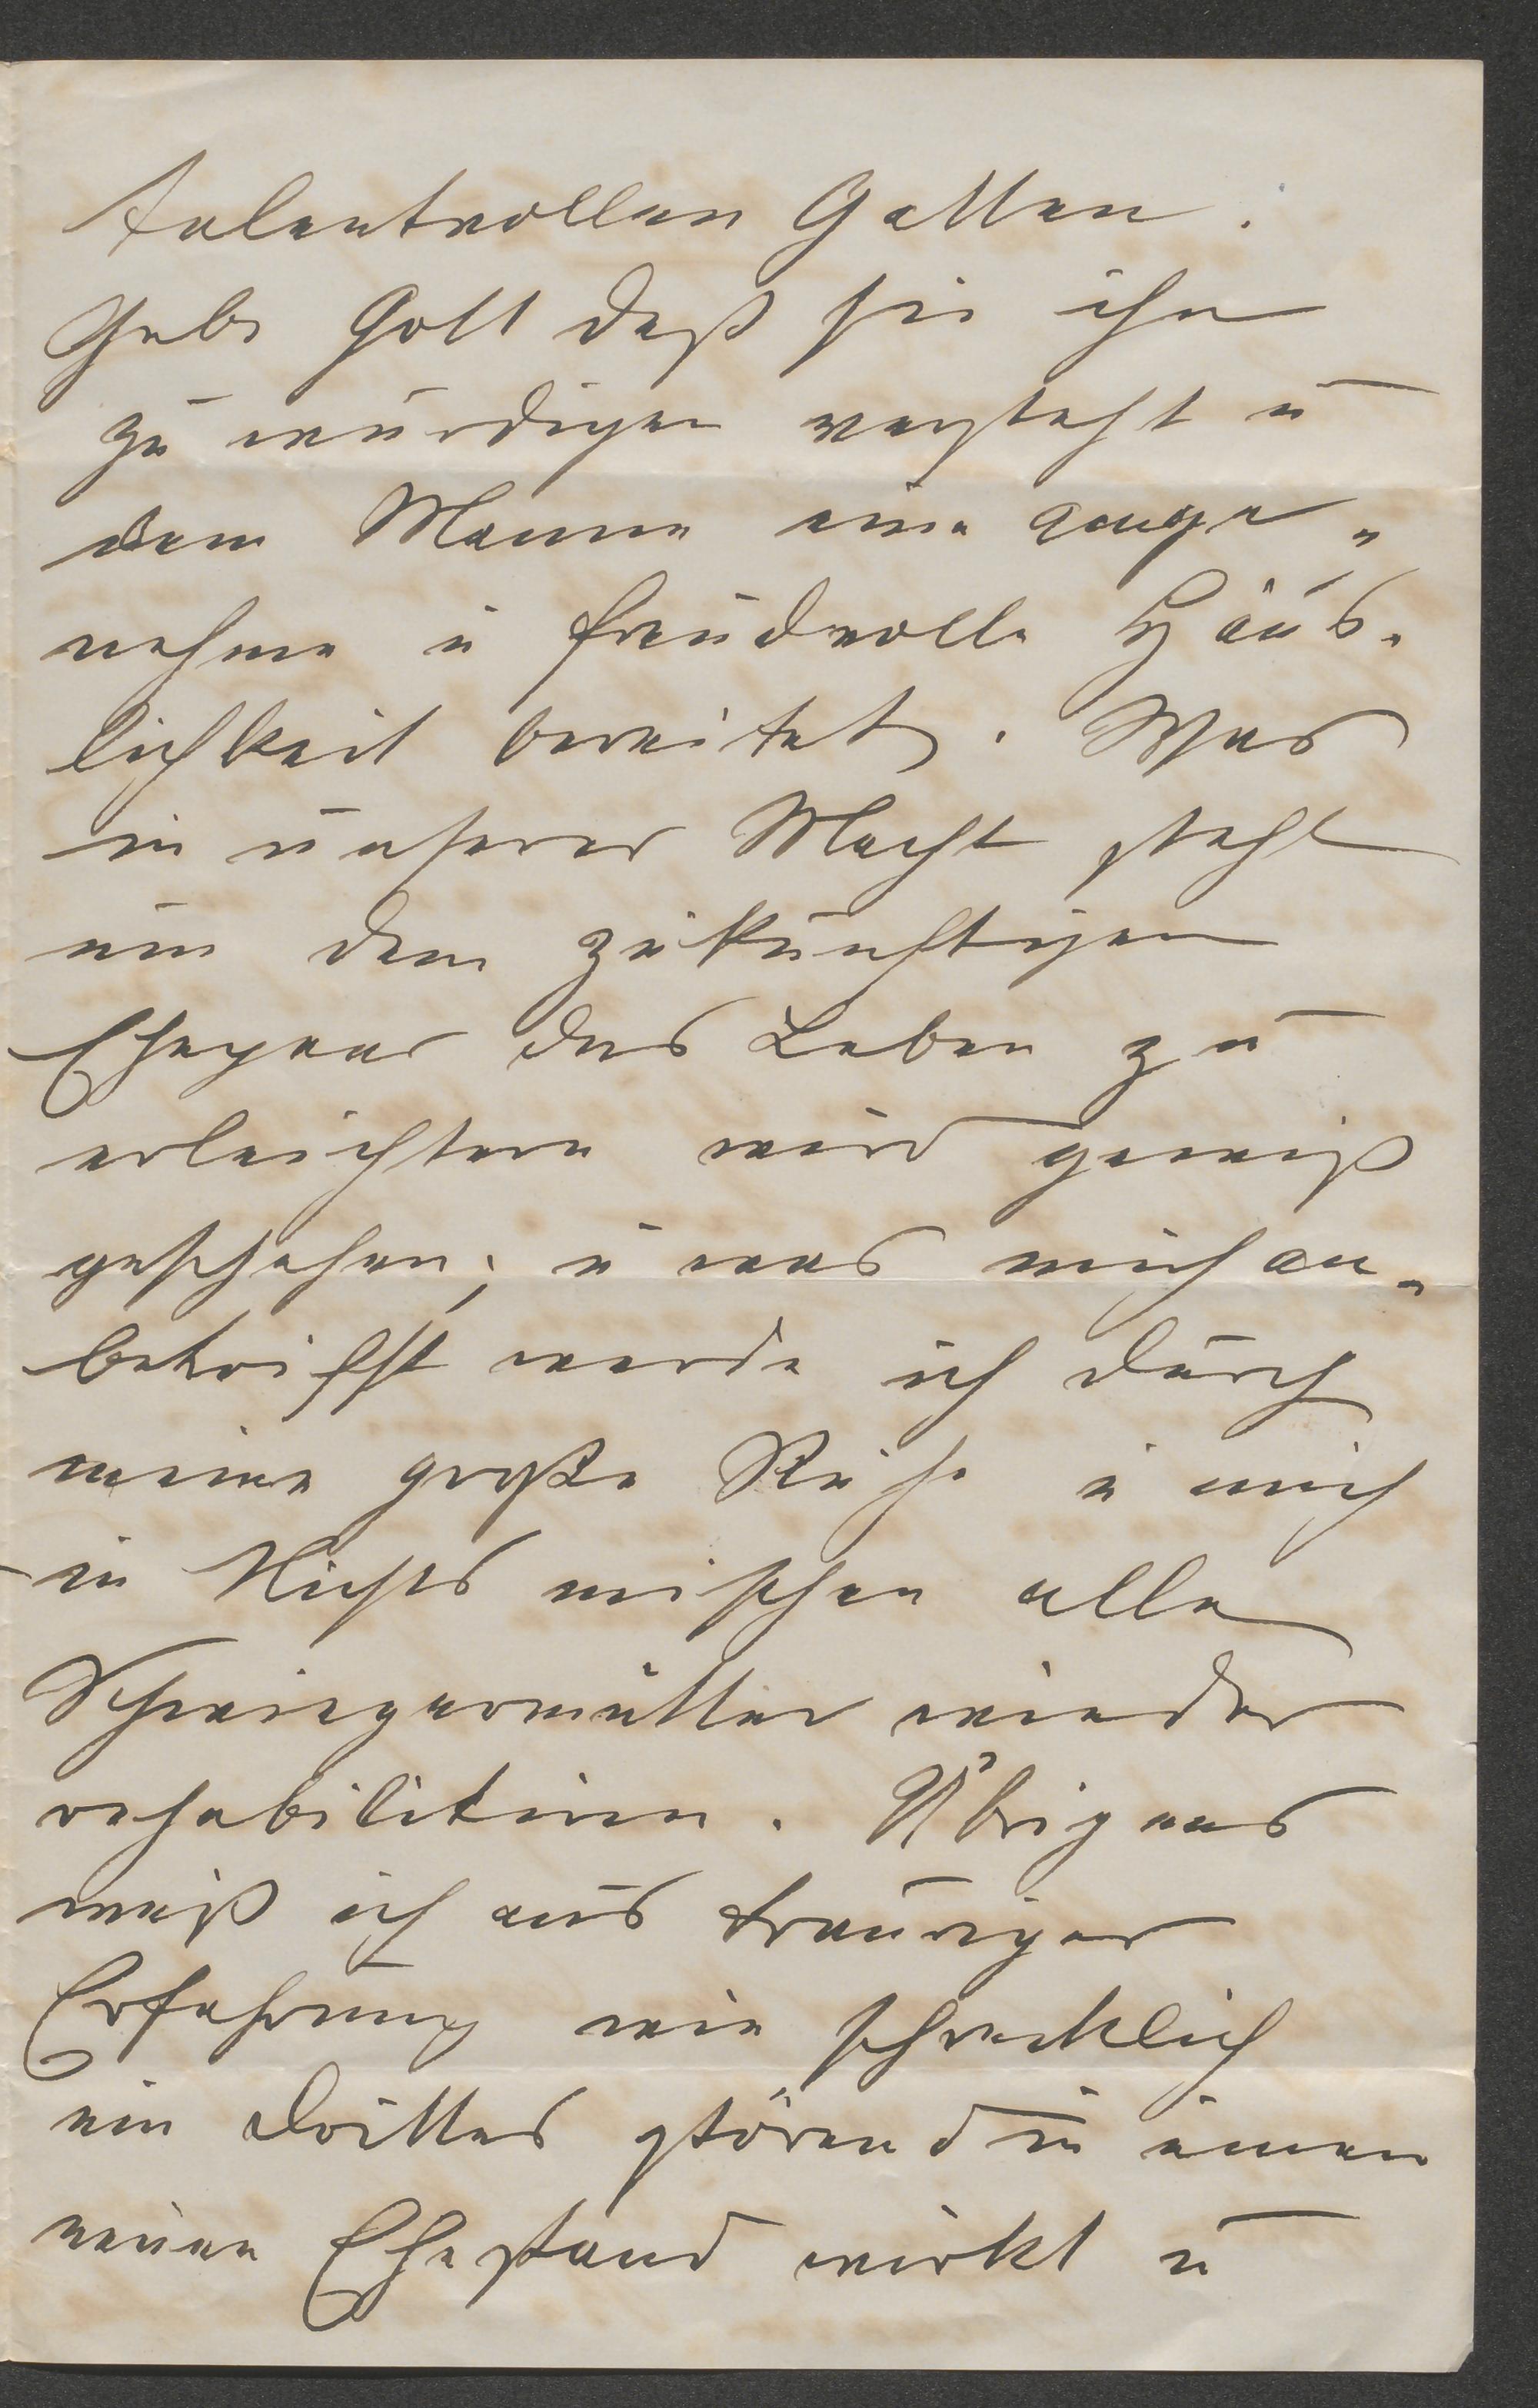 talentvollen Gatten.
Gebe Gott daß sie ihn
zu würdigen versteht u
dem Manne eine ange„
nehme u freudvolle Häus-
lichkeit bereitet. Was
in unserer Macht steht
um dem zukünftigen
Ehepaar das Leben zu
erleichtern wird gewiß
geschehen; u was mich an-
betrifft werde ich durch
meine große Ruhe u mich
in Nichts mischen alle
Schwiegermütter wieder
rehabilitiren. Übrigens
weiß ich aus trauriger
Erfahrung wie schrecklich
ein Drittes störend in einen
neuen Ehestand wirkt u